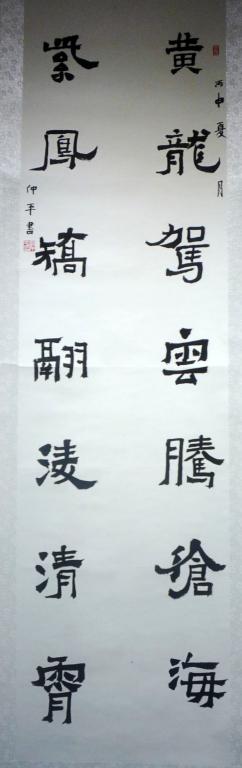 丙申夏月
黄龍駕雲騰滄海
紫鳳矯翮淩清霄
仲平書